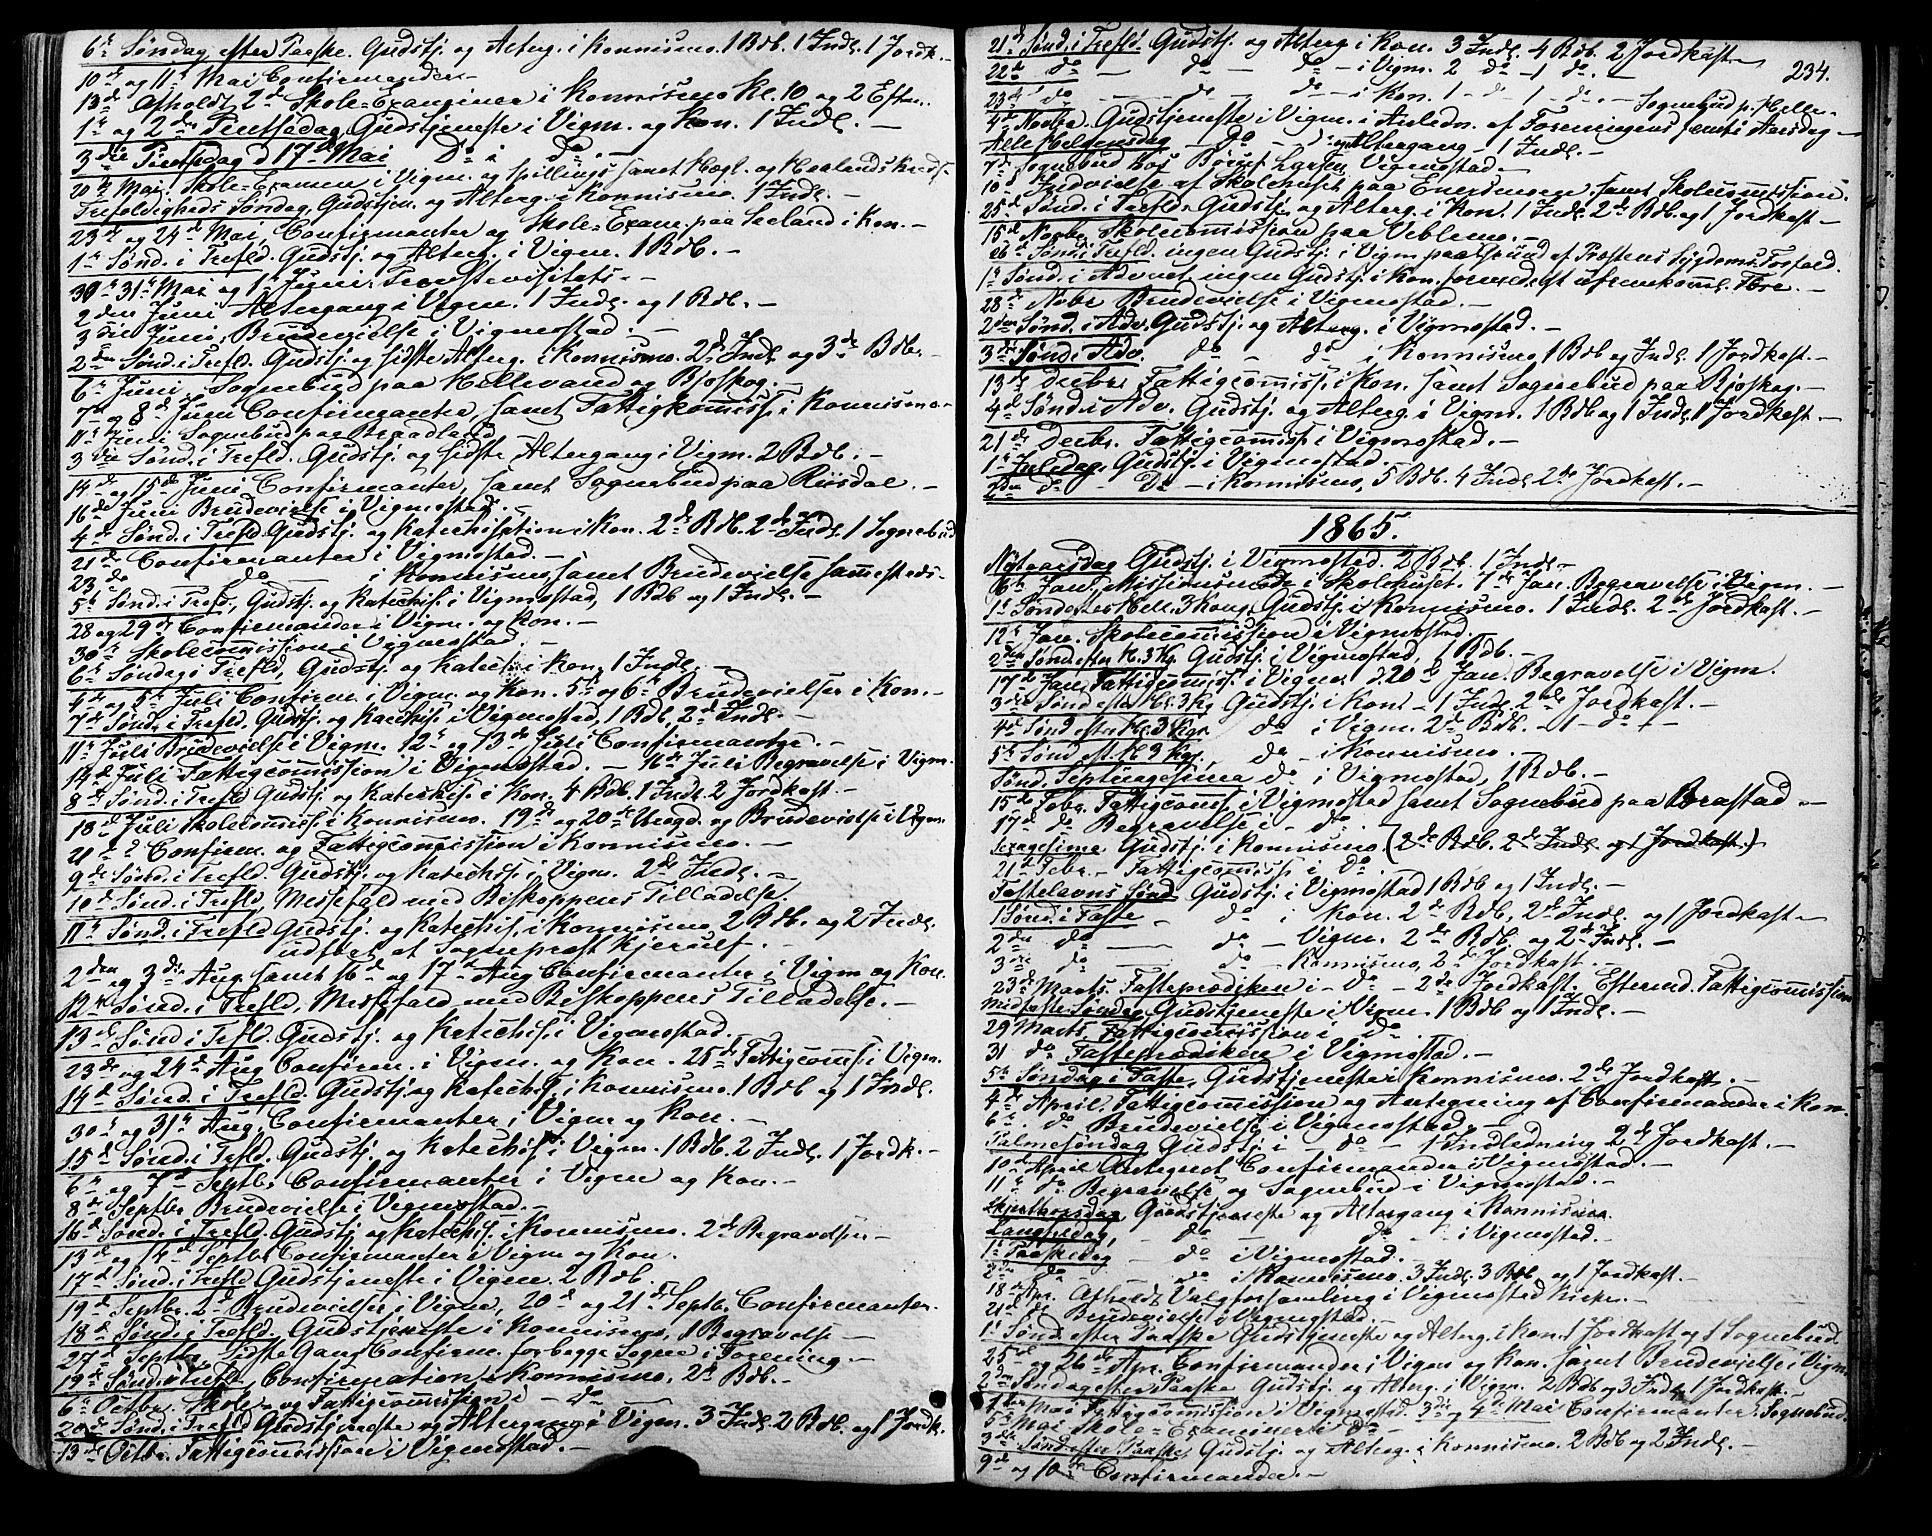 6te Søndag efter Paaske. Gudstj. og Alterg. i Konnismo. 1 Bdb. 1 Indl. 1 Jordk.
10de og 11te Mai Confirmander.
13de Afholdt 2de Skole-Examiner i Konnismo Kl. 10 og 2 Eftm.
1te og 2den Pintsedag Gudstjeneste i Vigm. og Kon. 1 Indl. —
3die Pintsedag d 17de Mai Do i Do —
20de Mai. Skole-Examen i Vigm. og Spillings samt Høgl. og Hærlands Kreds.
Trefoldigheds Søndag, Gudstjen. og Alterg. i Konnismo. 1 Indl. —
23de og 24de Mai, Confirmanter og Skole-Exam. paa Seeland i Kon. —
1te Sønd. i Trefld. Gudstj. og Alterg. i Vigm. 1 Bdb. —
30te 31te Mai og 1te Juni
2den Juni Altergang i Vigm. 1 Indl. og 1 Bdb. —
3die Juni, Brudevielse i Vigmostad. —
2den Sønd. i Trefld. Gudstj. og sidste Alterg. i Konnismo. 2de Indl. og 3de Bdb. —
6te Juni, Sognebud paa Hellevand og Bjoskog. —
7de og 8de Juni Confirmanter, samt Fattigkomiss. i Konnismo —
11te Juni Sognebud paa Braadland
3die Sønd. i Trefld. Gudstj. og sidste Altergang i Vigm. 2 Bdb. —
14de og 15de Juni Confirmanter, samt Sognebud paa Riisdal. —
16de Juni Brudevielse i Vigmostad. —
4de Sønd. i Trefld. Gudstj. og Katechisation i Kon. 2de Bdb. 2de Indl. 1 Sognebud
21de Confirmanter i Vigmostad. —
23de do i Konnismo samt Brudevielse sammesteds. —
5te Sønd. i Trefld., Gudstj. og Katechis. i Vigmostad, 1 Bdb og 1 Indl. —
28 og 29de Confirmander i Vigm. og Kon. —
30te Skolecomission i Vigmostad
6te Søndag i Trefld, Gudstj. og Katech. i Kon, 1 Indl. —
4de og 5te Juli Confirm. i Vigm. og Kon. 5te og 6te Brudevielser i Kon. —
7de Sønd. i Trefld. Gudstj. og Katechis. i Vigmostad, 1 Bdb, 2de Indl. —
11te Juli Brudevielse i Vigm. 12te og 13de Juli Confirmanter. —
14de Juli Fattigcomission i Vigmostad. — 16de Juli Begravelse i Vigm.
8de Sønd. i Trefld Gudstj. og Katechis. i Kon. 4 Bdb. 1 Indl. 2 Jordkast —
18de Juli Skolecomiss. i Konnismo. 19de og 20de Ungd. og Brudevielse i Vigm.
21de Confirm. og Fattigcomission i Konnismo. —
9de Sønd. i Trefld. Gudstj. og Katechis. i Vigm. 2de Indl. —
10de Sønd. i Trefld, Messefald med Biskoppens Tilladelse. —
11te Sønd. i Trefld Gudstj. og Katechis. i Konnismo 2 Bdb. og 2 Indl.
udført af Sogneprest Kjerulf. —
2den og 3die Aug. samt 16de og 17de Aug Confirmanter i Vigm og Kon.
12te Sønd. i Trefld, Messefald med Biskoppens Tilladelse. —
13de Sønd i Trefld. Gudstj. og Katechis. i Vigmostad. —
23de og 24de Aug Confirm. i Vigm. og Kon. 25de Fattigcomiss. i Vigm.
14de Sønd. i Trefld. Gudstj. og Katechis. i Konnismo. 1 Bdb og 1 Indl.
30te og 31te Aug, Confirmanter i Vigm og Kon. —
15de Sønd. i Trefld. Gudstj. og Katechis. i Vigm. 1 Bdb. 2 Indl. 1 Jordk. —
6te og 7de Septb. Confirmanter i Vigm og Kon. —
8de Septbr Brudevielse i Vigmostad. —
16de Sønd. i Trefld. Gudstj. og Katechis. i Konnismo. 2de Begravelser —
13de og 14de Septbr Confirmanter i Vigm og Kon.
17de Sønd. i Trefld. Gudstjeneste i Vigm. 2 Bdb.
19de Septbr. 2de Brudevielser i Vigm, 20de og 21de Septbr. Confirmanter.
18de Sønd i Trefld. Gudstjeneste i Konnismo, 1 Begravelse —
27de Septbr, Sidste Gang Confirm. for begge Sogne i Forening. —
19de Sønd. i Trefld, Confirmation i Konnismo, 2de Bdb. —
6te Octbr. Skole- og Fattigcomission i — do —
20de Sønd. i Trefld Gudstjeneste og Altergang i Vigm. 3 Indl. 2 Bdb. og 1 Jordk.
13de Octbr. Fattigcomission i Vigmostad. —
21de Sønd. i Trefld. Gudstj. og Alterg i Kon. 3 Indl. 4 Bdb. 2 Jordkast. —
234.
22de do — do — do — i Vigm. 2 do — 1 do. —
23de do — do — do — i Kon. 1 — do 1 — do. — Sognebud p. Hellen
4de Novbr. Gudstjeneste i Vigm. i Anledn. af Foreningens femti Aarsdag —
Alle Helgensdag — Do — i do og Altergang — 1 Indl. —
7de Sognebud hos Børuf Larsen Vigmostad. —
10de Indvielse af Skolehuset paa Enersmoen samt Skolecomission.
25de Sønd. i Trefld. Gudstj. og Alterg. i Kon. 1 Indl. 2de Bdb. og 1 Jordkast —
15de Novbr. Skolecomission paa Veblemo. —
26de Sønd. i Trefld. ingen Gudstj. i Vigm paa Grund af Præstens Sygdoms Forfald.
1te Sønd. i Advent ingen Gudstj. i Kon. formedelst
28de Nobr Brudevielse i Vigmostad. —
2den Sønd. i Adv. Gudstj. og Alterg. i Vigmostad. —
3die Sønd. i Adv. do — do i Konnismo 1 Bdb og Indl. 1 Jordkast. —
13de Decbr. Fattigcomiss. i Kon. samt Sognebud paa Bjoskog. —
4de Sønd. i Adv. Gudstj. og Alterg. i Vigm. 1 Bdb og 1 Indl. 1 Jordkast. —
21de Decbr. Fattigcomiss. i Vigmostad. —
1te Juledag. Gudstj. i Vigmostad. —
2den do — Do — i Konnismo, 5 Bdb. 4 Indl. 2de Jordkast. —
1865.
Nytaarsdag Gudstj. i Vigmostad. 2 Bdb. 1 Indl. —
6te Jan, Missionsmøde i Skolehuset. 7de Jan. Begravelse i Vigm. —
1te Sønd efter Hell. 3 Kong. Gudstj. i Konnismo. 1 Indl. 2de Jordkast. —
12te Jan. Skolecomission i Vigmostad.
2den Sønd. efter H. 3 Kg. Gudstj. i Vigmostad, 1 Bdb. —
17de Jan. Fattigcomiss i Vigm. d 20de Jan. Begravelse i Vigm.
3die Sønd efter Hl. 3 Kg Gudstj. i Kon. — 1 Indl. 2de Jordkast. —
4de Sønd efter Hl. 3 Kgr do i Vigm. 2de Bdb. — 1 — do —
5te Sønd eft. H 3 Kgr. do — i Konnismo. —
Sønd. Septuagesima do i Vigmostad, 1 Bdb. —
15de Febr. Fattigcomss. i Vigmostad samt Sognebud paa Brastad. —
17de do Begravelse i — do.
Sexagesima Gudstj. i Konnismo. (2de Bdb. 2de Indl. og 1 Jordkast.)
21de Febr. — Fattigcomiss i Do.
Fastelavns Sønd. Gudstj. i Vigmostad 1 Bdb og 1 Indl. —
1 Sønd i Faste — do i Kon. 2de Bdb, 2de Indl. og 1 Jordkast —
2den do — do — Vigm. 2de Bdb, og 2de Indl. —
3die do — do — Konnismo, 2de Jordkast. —
23de Marts. Fasteprædiken i — Do — 2de Jordkast. Eftermd. Fattigcomission
Midfaste Søndag Gudstjeneste i Vigm. 1 Bdb og 1 Indl. —
29 Marts. Fattigcomission i do
31 do Fasteprædiken i Vigmostad. —
5te Søndag i Faste, Gudstjeneste i Konnismo. 2de Jordkast. —
4de April. Fattigcomission og Antegning af Confirmander i Kon.
6te do Brudevielse i Vigmostad. —
Palmesøndag Gudstj. i — do — 1 Indledning 2de Jordkast. —
10de April Antegnet Confirmander i Vigmostad. —
11te do Begravelse og Sognebud i Vigmostad. —
Skjærthorsdag, Gudstjeneste og Altergang i Konnismo.
Langfredag, — do — do — i Vigmostad. —
1te Paaskedag — do i Vigmostad. —
2den do — do i Konnismo. 3 Indl. 3 Bdb og 1 Jordkast. —
18de Apr. Afholdt Valgforsamling i Vigmostad Kirke. —
21de do Brudevielse i Vigmostad
1te Sønd. efter Paaske Gudstjeneste og Alterg. i Kon. 1 Jordkast og 1 Sognebud.
25de og 26de Apr. Confirmander i Vigm og Kon. samt Brudevielse i Vigm
2den Søndag efter Paaske Gudstj. og Alterg. i Vigm. 2 Bdb og 3 Indl. 1 Jordkast. —
1te Mai Fattigcomission i Vigmostad. 3die og 4de Mai Confirmanter. Sognebud.
5te Mai Skole-Examiner i Do —
3die Sønd efter Paaske, Gudstj. og Alterg. i Konnismo. 2 Bdb og 2 Indl. —
9de og 10de Confirmander. —